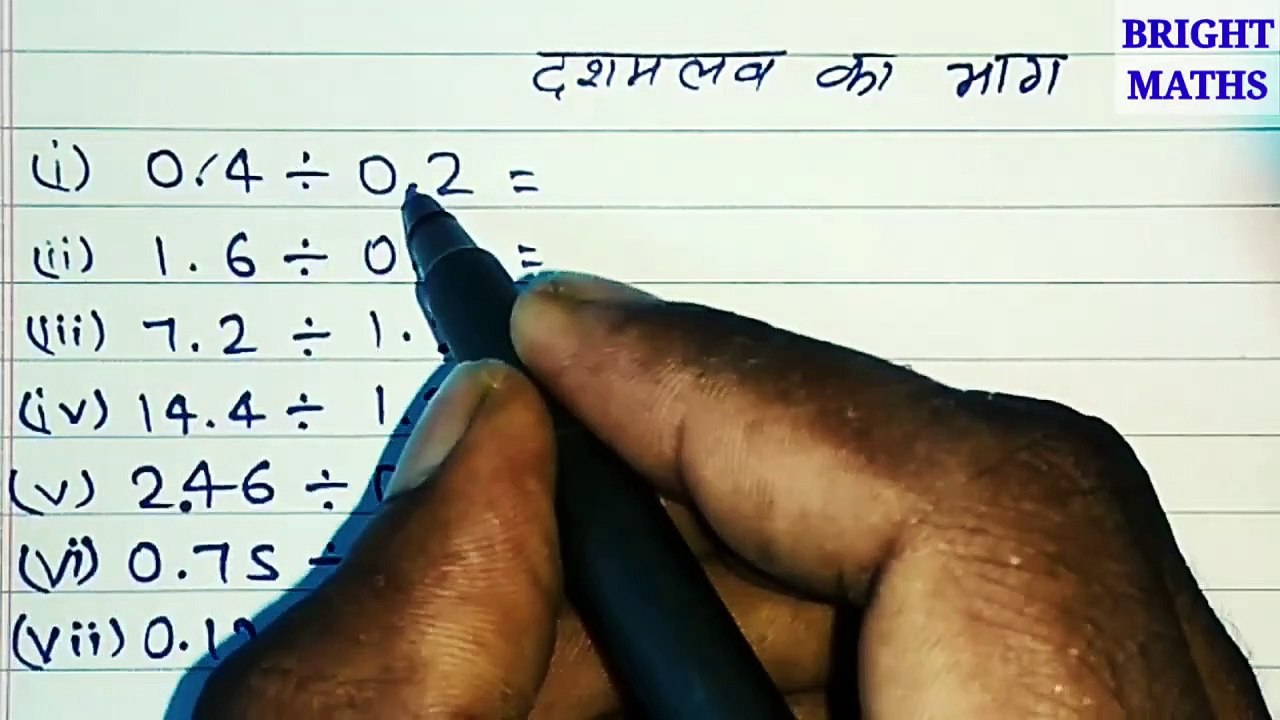 BRIGHT
MATHS
दशमलव का भाग
(i) 0.4 ÷ 0.2 =
(ii) 1.6 ÷ 0 =
(iii) 7.2 ÷ 1.
(iv) 14.4 ÷ 1.
(v) 2.46 ÷
(vi) 0.75 ÷
(vii) 0.1